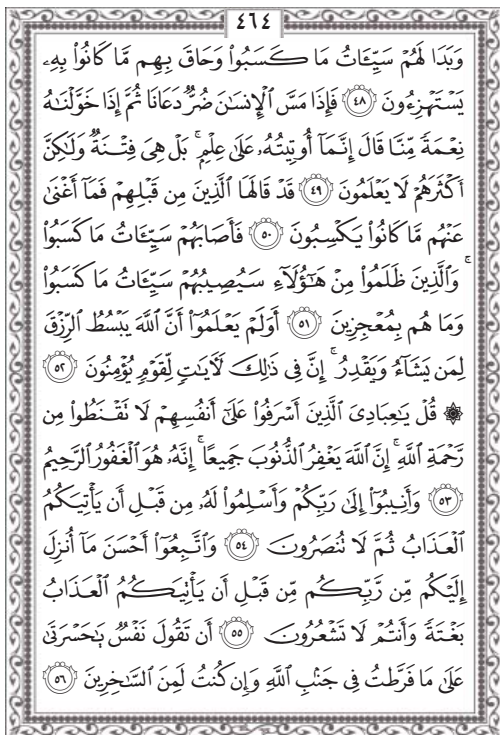 ٤٦٤
وَبَدَا لَهُمْ سَيِّـَٔاتُ مَا كَسَبُوا۟ وَحَاقَ بِهِم مَّا كَانُوا۟ بِهِۦ
يَسْتَهْزِءُونَ ٤٨ فَإِذَا مَسَّ ٱلْإِنسَـٰنَ ضُرٌّ دَعَانَا ثُمَّ إِذَا خَوَّلْنَـٰهُ
نِعْمَةً مِّنَّا قَالَ إِنَّمَآ أُوتِيتُهُۥ عَلَىٰ عِلْمٍۭ ۚ بَلْ هِىَ فِتْنَةٌ وَلَـٰكِنَّ
أَكْثَرَهُمْ لَا يَعْلَمُونَ ٤٩ قَدْ قَالَهَا ٱلَّذِينَ مِن قَبْلِهِمْ فَمَآ أَغْنَىٰ
عَنْهُم مَّا كَانُوا۟ يَكْسِبُونَ ٥٠ فَأَصَابَهُمْ سَيِّـَٔاتُ مَا كَسَبُوا۟
ۚ وَٱلَّذِينَ ظَلَمُوا۟ مِنْ هَـٰٓؤُلَآءِ سَيُصِيبُهُمْ سَيِّـَٔاتُ مَا كَسَبُوا۟
وَمَا هُم بِمُعْجِزِينَ ٥١ أَوَلَمْ يَعْلَمُوٓا۟ أَنَّ ٱللَّهَ يَبْسُطُ ٱلرِّزْقَ
لِمَن يَشَآءُ وَيَقْدِرُ ۚ إِنَّ فِى ذَٰلِكَ لَـَٔايَـٰتٍ لِّقَوْمٍ يُؤْمِنُونَ ٥٢
۞ قُلْ يَـٰعِبَادِىَ ٱلَّذِينَ أَسْرَفُوا۟ عَلَىٰٓ أَنفُسِهِمْ لَا تَقْنَطُوا۟ مِن
رَّحْمَةِ ٱللَّهِ ۚ إِنَّ ٱللَّهَ يَغْفِرُ ٱلذُّنُوبَ جَمِيعًا ۚ إِنَّهُۥ هُوَ ٱلْغَفُورُ ٱلرَّحِيمُ
٥٣ وَأَنِيبُوٓا۟ إِلَىٰ رَبِّكُمْ وَأَسْلِمُوا۟ لَهُۥ مِن قَبْلِ أَن يَأْتِيَكُمُ
ٱلْعَذَابُ ثُمَّ لَا تُنصَرُونَ ٥٤ وَٱتَّبِعُوٓا۟ أَحْسَنَ مَآ أُنزِلَ
إِلَيْكُم مِّن رَّبِّكُم مِّن قَبْلِ أَن يَأْتِيَكُمُ ٱلْعَذَابُ
بَغْتَةً وَأَنتُمْ لَا تَشْعُرُونَ ٥٥ أَن تَقُولَ نَفْسٌ يَـٰحَسْرَتَىٰ
عَلَىٰ مَا فَرَّطتُ فِى جَنۢبِ ٱللَّهِ وَإِن كُنتُ لَمِنَ ٱلسَّـٰخِرِينَ ٥٦